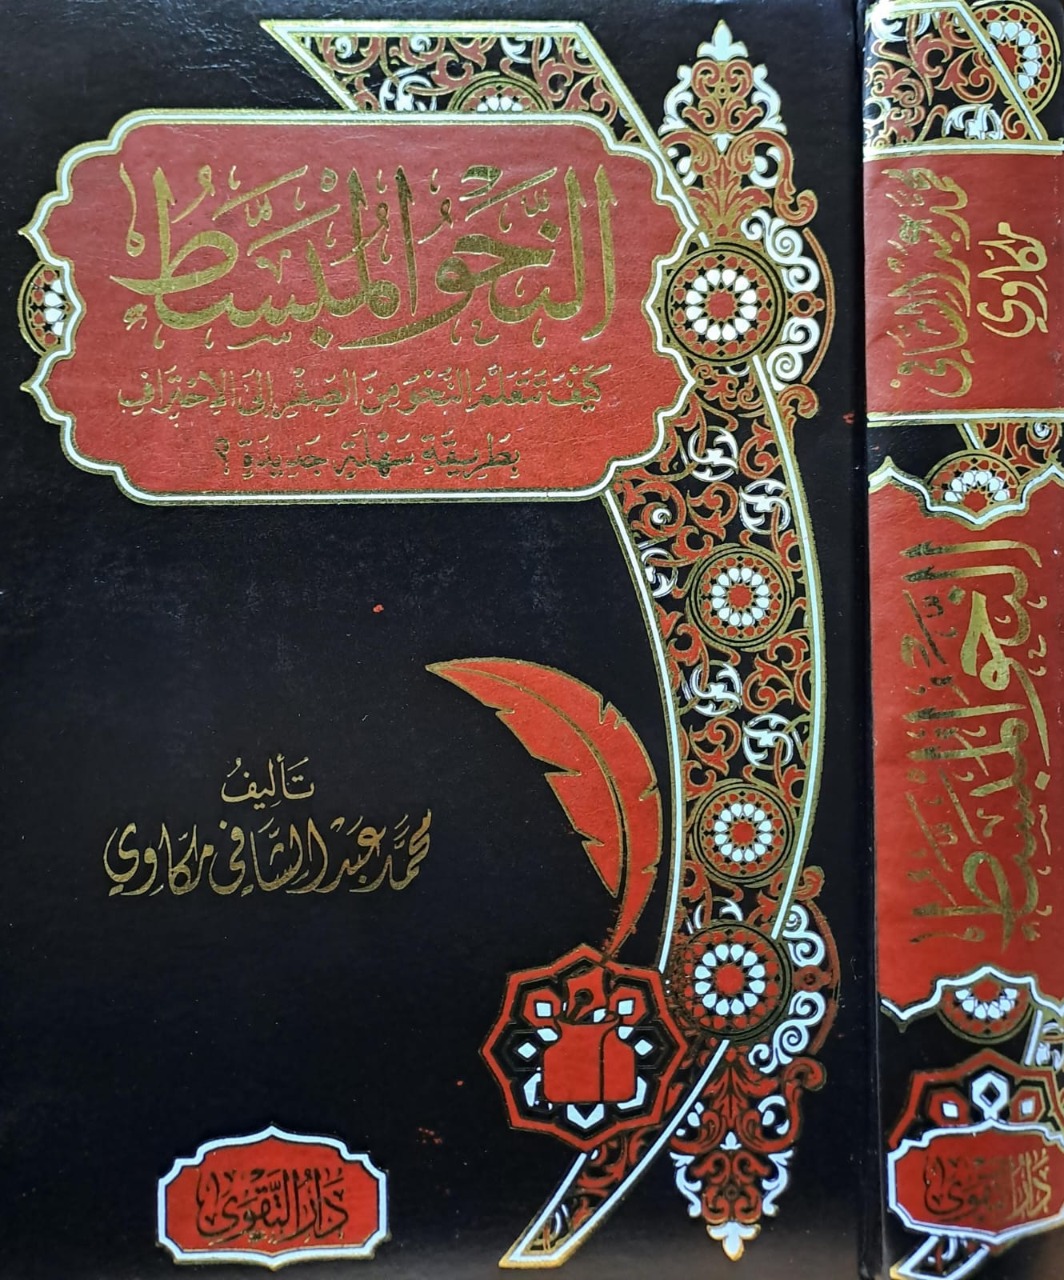 النَّحْوُ المُبَسَّطُ
كَيْفَ تَتَعَلَّمُ النَّحْوَ مِنَ الصِّفْرِ إِلَى الِاحْتِرَافِ
بِطَرِيقَةٍ سَهْلَةٍ جَدِيدَةٍ ؟
تَأليفُ
محمَّد عَبْد الشَّافِي مكَّاوِي
دَارُ التَّقْوَى
محمَّد عَبْد الشَّافِي
مكَّاوِي
النَّحْوُ المُبَسَّطُ
دَارُ التَّقْوَى